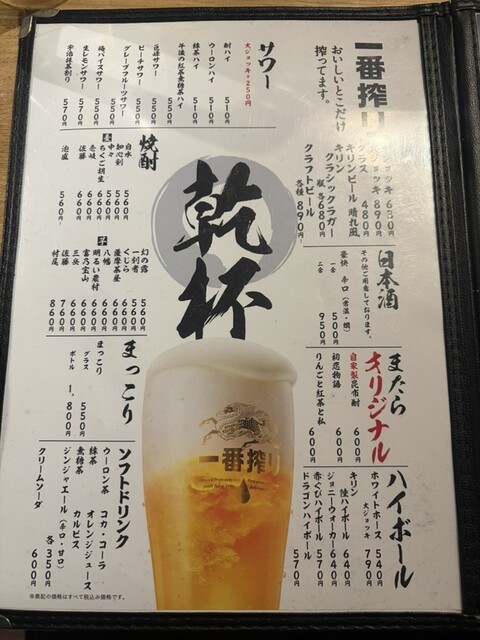 一番搾り
おいしいとこだけ
搾ってます。
ジョッキ 630円
大ジョッキ 890円
グラス 480円
キリンビール 晴れ風
キリン
クラシックラガー
瓶 各680円
クラフトビール
各種 890円
日本酒
その他ご用意しております。
豪快 辛口(常温・燗)
一合 500円
二合 950円
またら
オリジナル
自家製昆布酎 600円
初恋物語 600円
りんごと紅茶と私 600円
ハイボール
ホワイトホース 540円
大ジョッキ 790円
キリン
陸ハイボール 640円
ジョニーウォーカー 640円
赤ぐびハイボール 570円
ドラゴンハイボール 570円
サワー
大ジョッキ+250円
酎ハイ 510円
ウーロンハイ 510円
緑茶ハイ 510円
午後の紅茶無糖茶ハイ 550円
巨峰サワー 550円
ピーチサワー 550円
グレープフルーツサワー 550円
梅バイスサワー 550円
生レモンサワー 570円
宇治抹茶割り 570円
焼酎
麦
白水 560円
知心剣 560円
中々 560円
ちくご胡坐 560円
壱岐 660円
佐藤 660円
池盛 560円
芋
幻の露 560円
一刻者 560円
くじら 660円
薩摩茶屋 660円
八幡 660円
明るい農村 660円
富乃宝山 660円
三岳 660円
佐藤 760円
村尾 860円
乾杯
まっこり
まっこり
グラス 550円
ボトル 1,800円
ソフトドリンク
コカ・コーラ
オレンジジュース
カルピス
ウーロン茶
緑茶
無糖茶
ジンジャエール(辛口・甘口)
各350円
クリームソーダ 600円
一番搾り
※表記の価格はすべて税込み価格です。